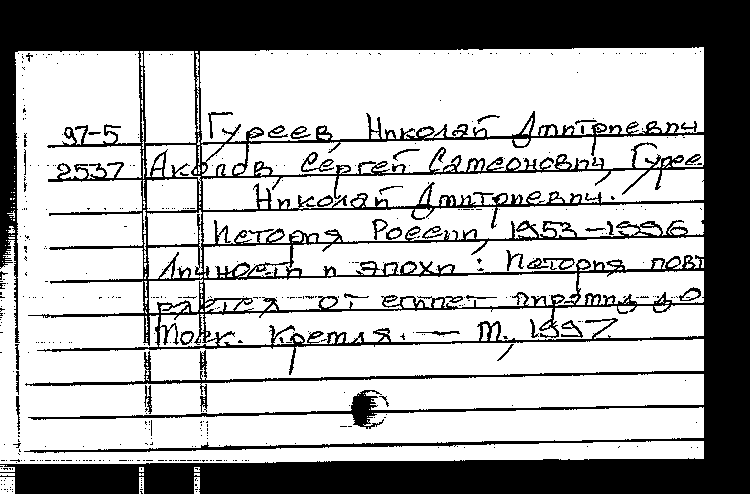 97-5 Гуреев, Николай Дмитриевич
2537 Акопов, Сергей Самсонович, Гурее
Николай Дмитриевич.
История России, 1953-1996 :
Личности и эпохи : История повт
ряется от египет. пирамид до
Моск. Кремля. — М., 1997